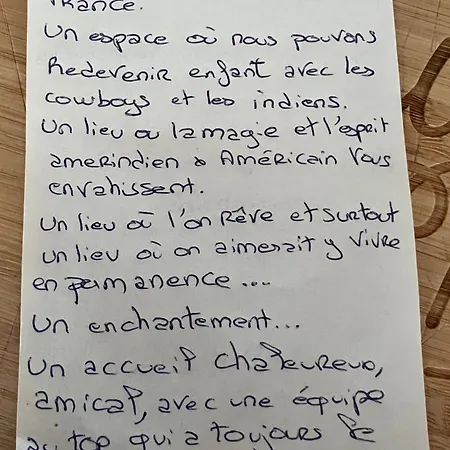 France.
Un espace où nous pouvons
Redevenir enfant avec les
cowboys et les indiens.
Un lieu ou la magie et l'esprit
amerindien & Américain vous
envahissent.
Un lieu où l'on Rêve et surtout
un lieu où on aimerait y vivre
en permanence ...
Un enchantement...
Un accueil chaleureux,
amical, avec une équipe
au top qui a toujours le